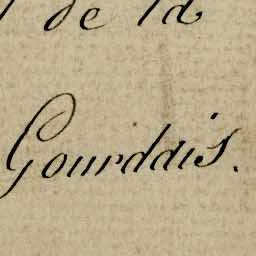 de la
Gourdais.